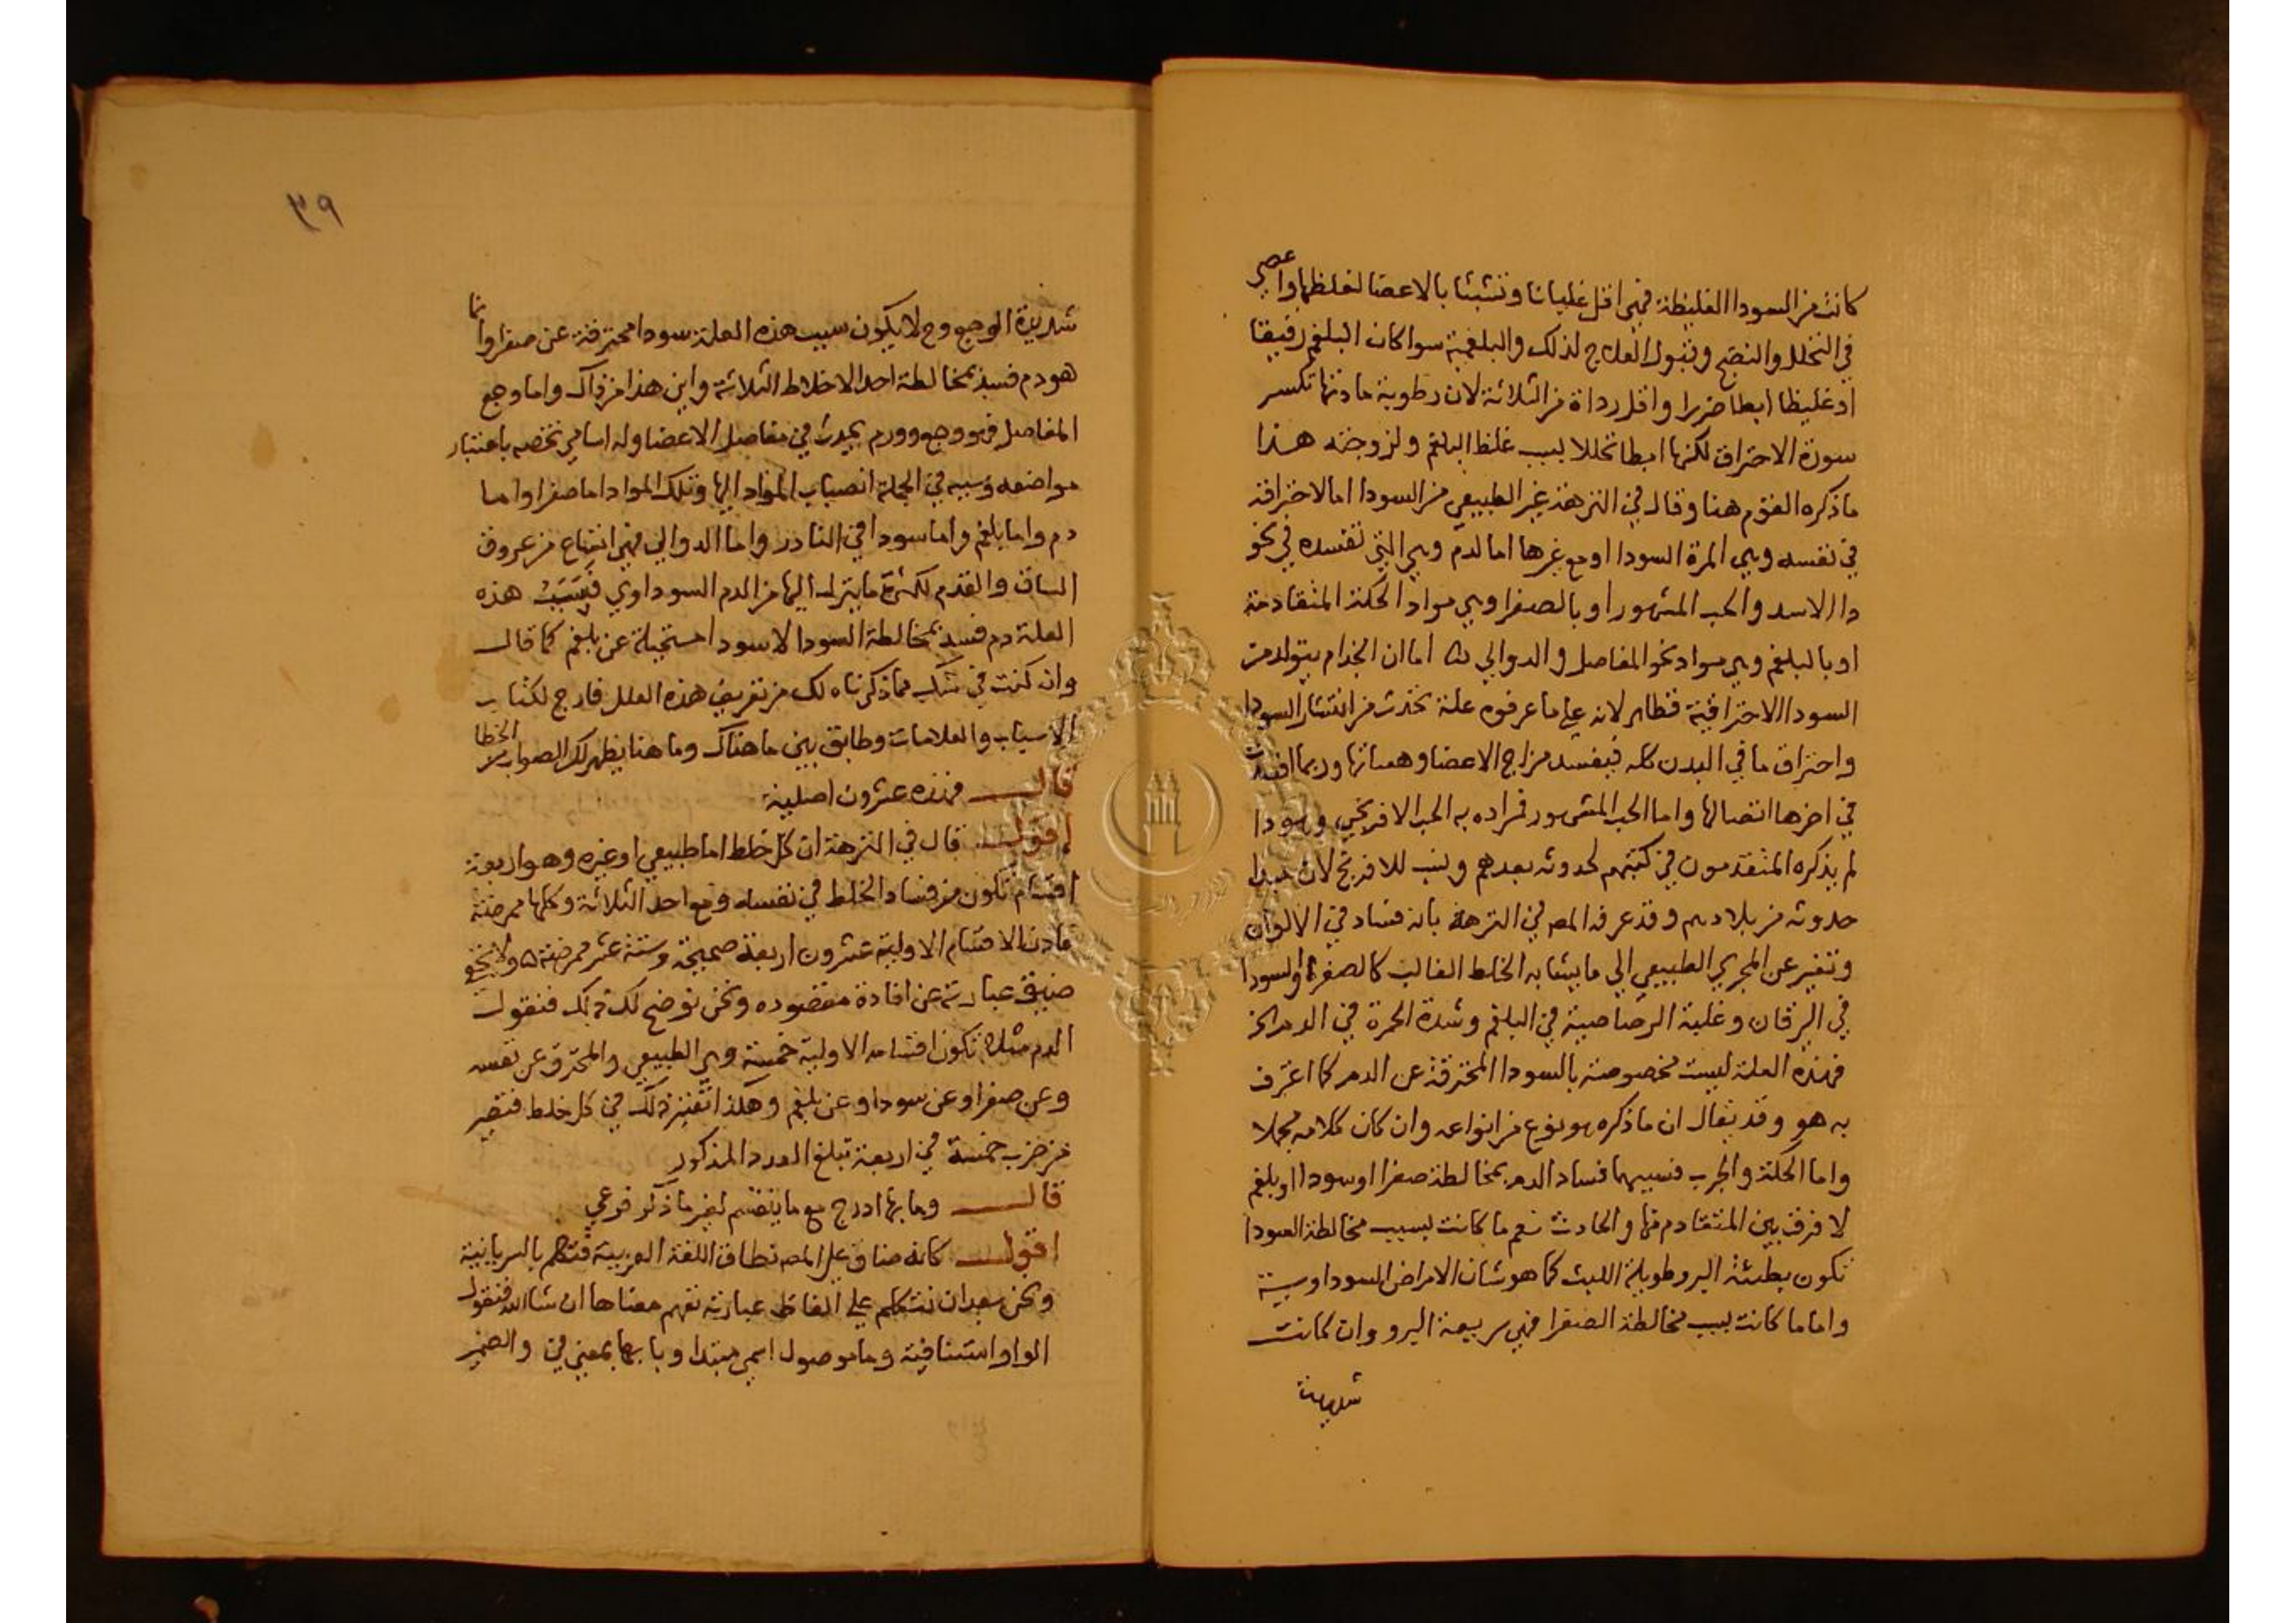 كانت من السودا الغليظة فهي اقل غليانا وتشبثا بالاعضا لغلظها واعصي
في التخلل والنضج وقبول العلاج لذلك والبلغمية سوا كان البلغم رقيقا
او غليظا ابطا ضررا واقل رداة من الثلاثة لان رطوبة مادتها تكسر
سورة الاحتراق لكنها ابطا تحللا لسبب غلظ البلغم ولزوجته هذا
ما ذكره القوم هنا وقال في النزهة غير الطبيعي من السودا اما لاحتراقه
في نفسه وهي المرة السودا او مع غيرها اما لدم وهي التي تفسده في نحو
دا الاسد والحب المشهور او بالصفرا وهي مواد الحكة المتقادمة
او بالبلغم وهي مواد نحو المفاصل والدوالي اما ان الجذام يتولد من
السودا الاحتراقية فظاهر لانه علي ما عرفوه علة تحدث من انتشار السودا
واحتراق ما في البدن كله فيفسد مزاج الاعضا وهياتها وربما افسدت
في اخرها اتصالها واما الحب المشهور فمراده به الحب الافرنجي وهو دا
لم يذكره المتقدمون في كتبهم لحدوثه بعدهم ونسب للافرنج لان مبدا
حدوثه من بلادهم وقد عرفه المص في النزهة بانه فساد في الالوان
وتغير عن المجري الطبيعي الي ما يشابه الخلط الغالب كالصفرة او السودا
في اليرقان وغلبة الرصاصية في البلغم وشدة الحمرة في الدم الخ
فهذه العلة ليست مخصوصة بالسودا المحترقة عن الدم كما اعترف
به هو وقد يقال ان ما ذكره هو نوع من انواعه وان كان كلامه مجملا
واما الحكة والجرب فسببهما فساد الدم بمخالطة صفرا او سودا او بلغم
لا فرق بين المتقادم منها والحادث نعم ما كانت بسبب مخالطة السودا
تكون بطيئة البرو طويلة اللبث كما هو شان الامراض السوداوسية
واما ما كانت بسبب مخالطة الصفرا فهي سريعة البرو وان كانت
شديدة
٣٩
شديدة الوجع وح لا يكون سبب هذه العلة سودا محترقة عن صفرا وانما
هو دم فسد بمخالطة احد الاخلاط الثلاثة واين هذا من ذاك واما وجع
المفاصل فهو وجع وورم يحدث في مفاصل الاعضا وله اسامي تخصه باعتبار
مواضعه وسببه في الجملة انصباب المواد اليها وتلك المواد اما صفرا واما
دم واما بلغم واما سودا في النادر واما الدوالي فهي اتساع من عروق
الساق والقدم لكثرة ما ينزل اليها من الدم السوداوي فسبب هذه
العلة دم فسد بمخالطة السودا لا سودا مستحيلة عن بلغم كما قال
وان كنت في شك مما ذكرناه لك من تعريف هذه العلل فارجع لكتاب
الاسباب والعلامات وطابق بين ما هناك وما هنا يظهر لك الصواب من الخطا
قال فهذه عشرون اصلية
اقول قال في النزهة ان كل خلط اما طبيعي او غيره وهو اربعة
اقسام تكون من فساد الخلط في نفسه ومع احد الثلاثة وكلها ممرضة
فاذن الاقسام الاولية عشرون اربعة صحيحة وستة عشر ممرضة ولا يخفي
ضيق عبارته عن افادة مقصوده ونحن نوضح لك ذلك فنقول
الدم مثلا تكون اقسامه الاولية خمسة وهي الطبيعي والمحترق عن نفسه
وعن صفرا وعن سودا وعن بلغم وهكذا تعتبر ذلك في كل خلط فتصير
من ضرب خمسة في اربعة تبلغ العدد المذكور
قال وما بها ادرج مع ما ينقسم لغير ما ذكر فرعي
اقول كانه ضاق علي المص نطاق اللغة العربية فتكلم بالسريانية
ونحن بعد ان نتكلم علي الفاظ عبارته نفهم معناها ان شا الله فنقول
الواو استئنافية وما موصول اسمي مبتدا وبا بها بمعني في والضمير